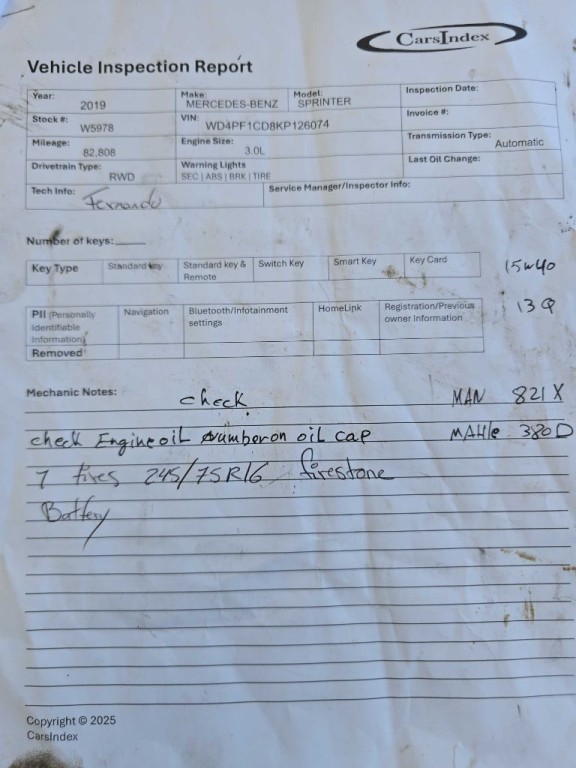 CarsIndex
Vehicle Inspection Report
Year: 2019
Make: MERCEDES-BENZ
Model: SPRINTER
Inspection Date:
Stock #: W5978
VIN: WD4PF1CD8KP126074
Invoice #:
Mileage: 82,808
Engine Size: 3.0L
Transmission Type: Automatic
Drivetrain Type: RWD
Warning Lights
SEC | ABS | BRK | TIRE
Last Oil Change:
Tech Info: Fernando
Service Manager/Inspector Info:
Number of keys:
Key Type
Standard key
Standard key & Remote
Switch Key
Smart Key
Key Card
15w40
13 Q
PII (Personally Identifiable Information) Removed
Navigation
Bluetooth/Infotainment settings
HomeLink
Registration/Previous owner Information
Mechanic Notes:
check
MAN 821 X
check Engine oil number on oil cap
MAHle 380D
7 tires 245/75R16 firestone
Battery
Copyright © 2025
CarsIndex